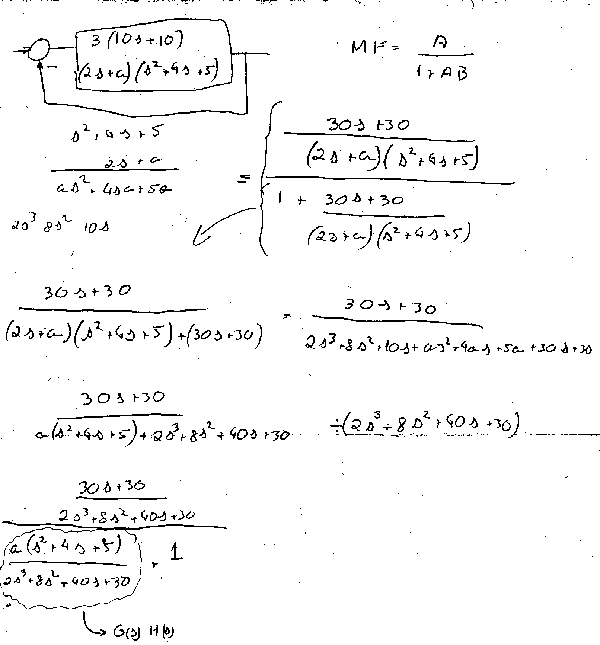 3(10s+10)
(2s+a)(s²+4s+5)
MF = A
1+AB
s²+4s+5
2s+a
as²+4sa+5a
2s³ 8s² 10s
= 30s+30
(2s+a)(s²+4s+5)
1 + 30s+30
(2s+a)(s²+4s+5)
30s+30
(2s+a)(s²+4s+5)+(30s+30)
= 30s+30
2s³+8s²+10s+as²+4as+5a+30s+30
30s+30
a(s²+4s+5)+2s³+8s²+40s+30
÷(2s³+8s²+40s+30)
30s+30
2s³+8s²+40s+30
a(s²+4s+5)
2s³+8s²+40s+30
+ 1
G(s) H(s)